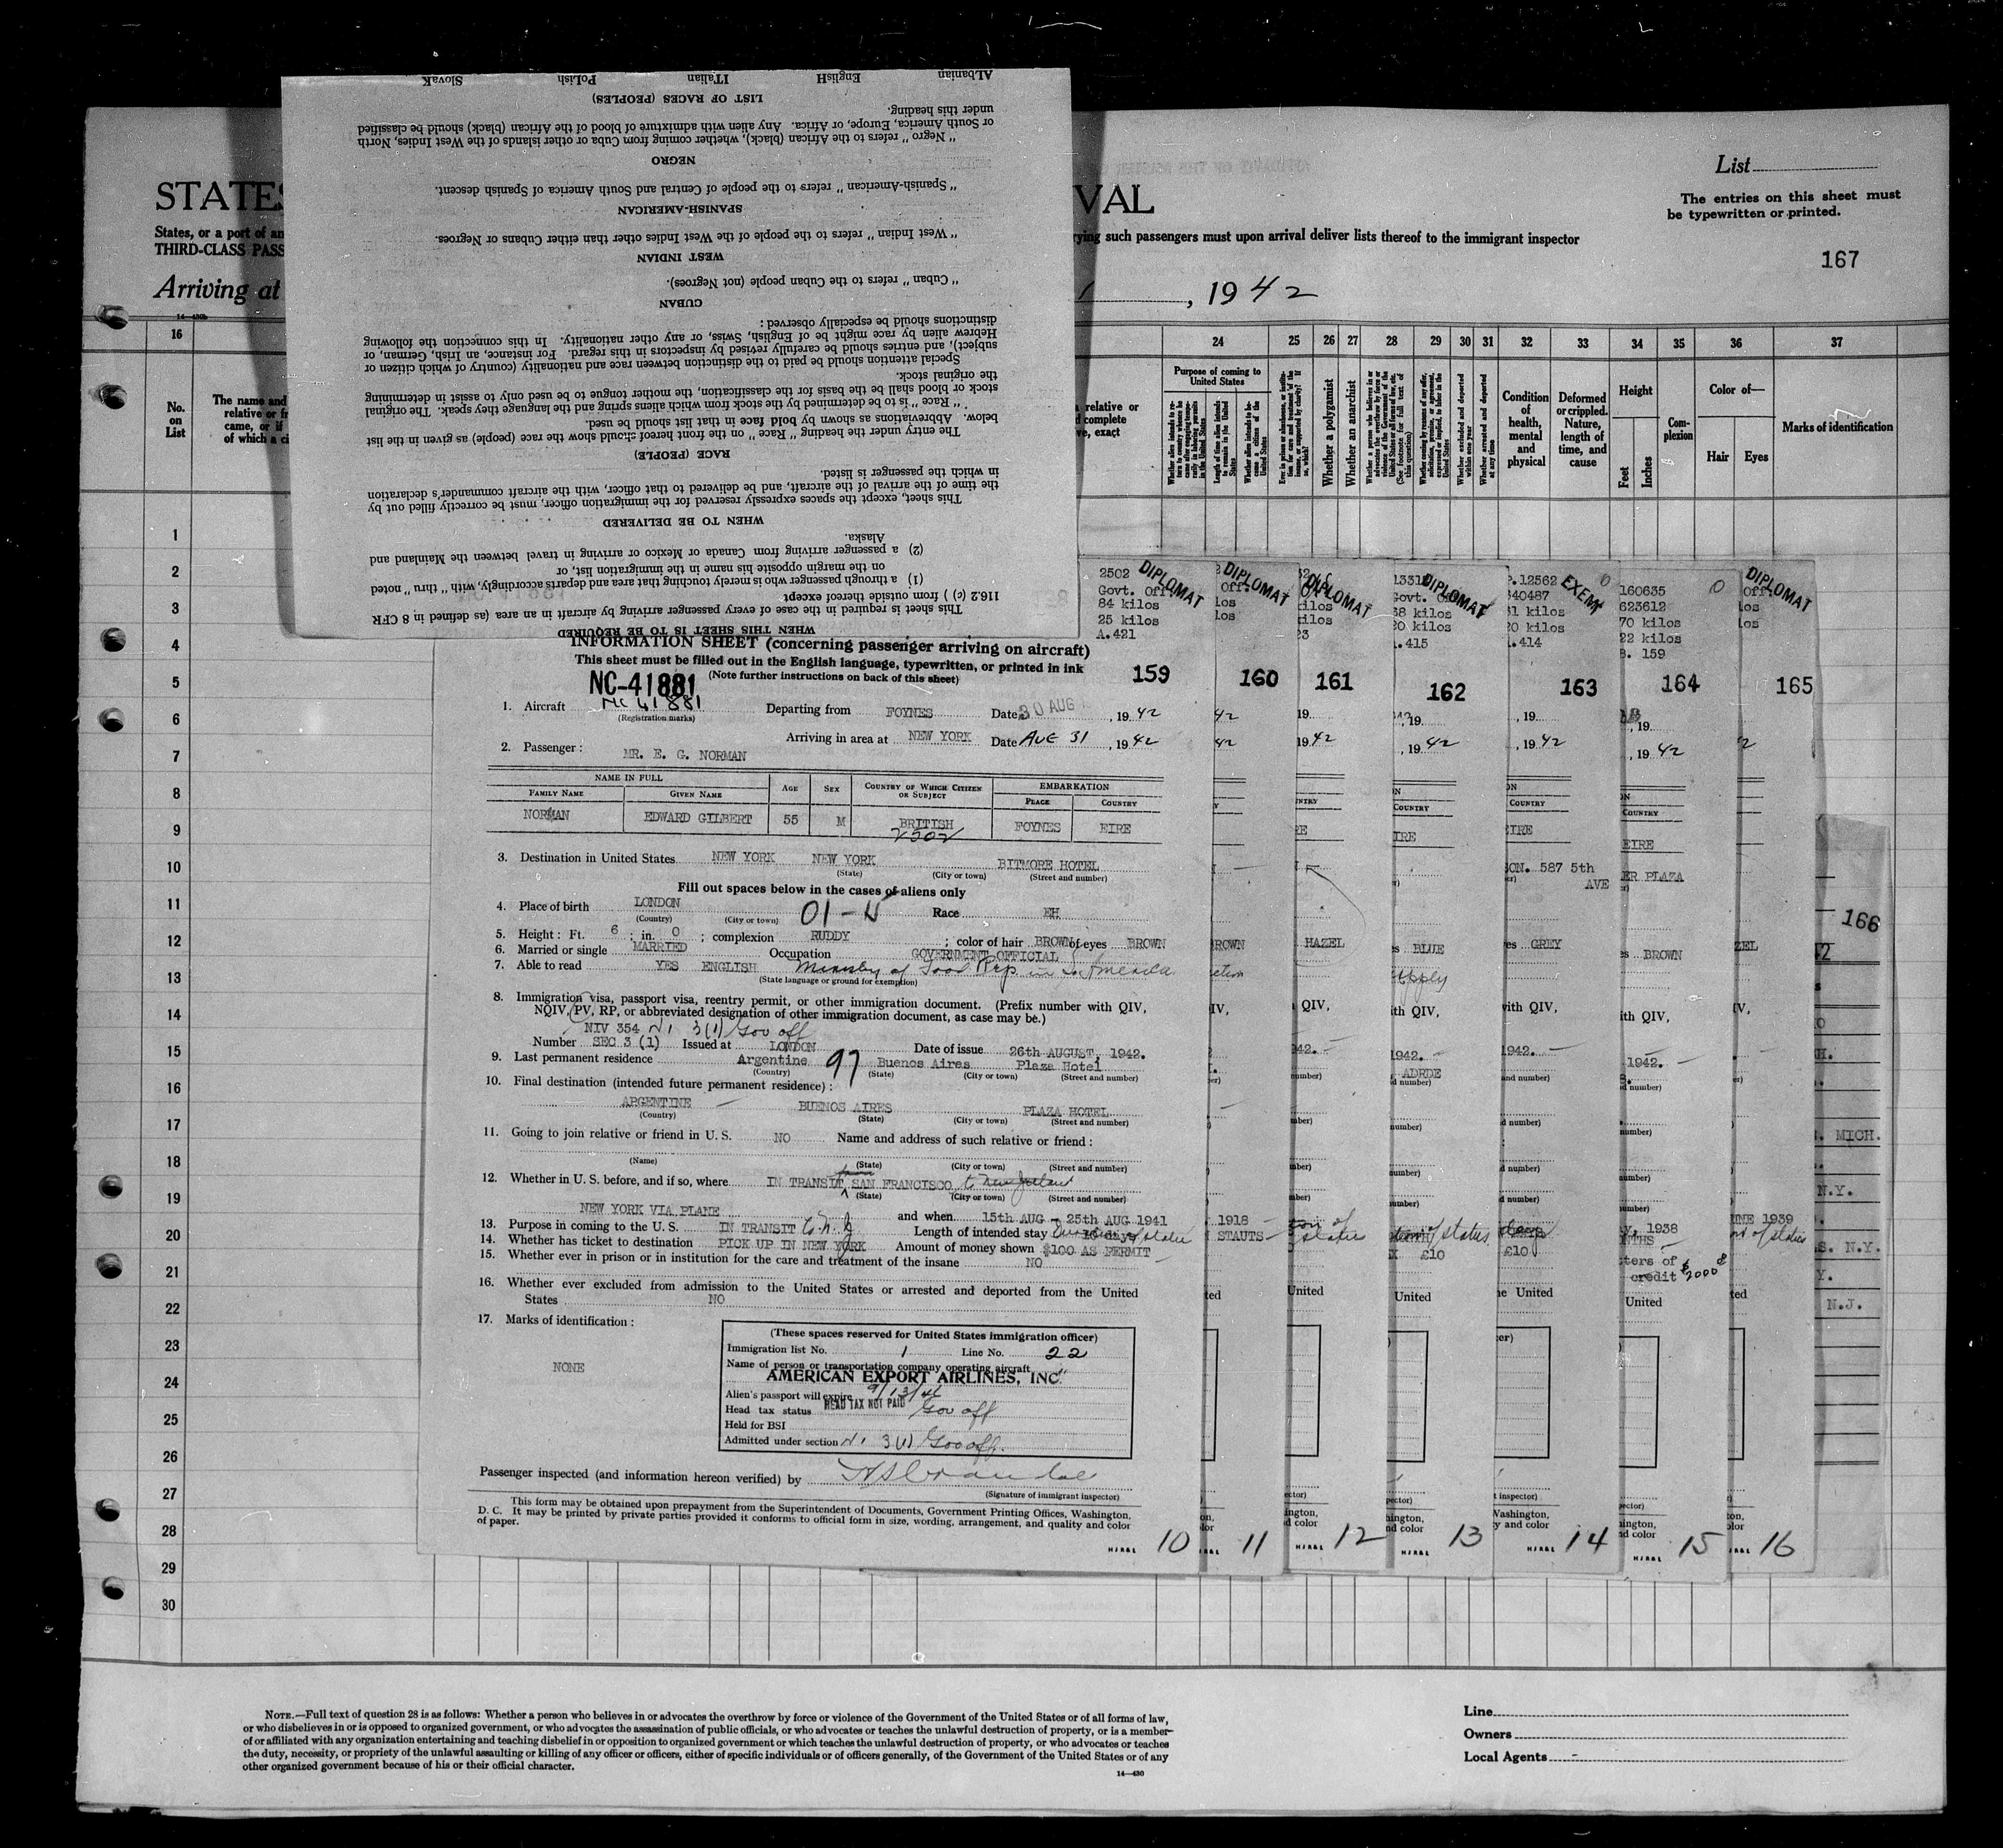 ALbanian EnglisH ITaliAn PoLish SlovaK
LIST OF RACES (PEOPLES)
under this heading.
or South America, Europe, or Africa. Any alien with admixture of blood of the African (black) should be classified
" Negro " refers to the African (black), whether coming from Cuba or other islands of the West Indies, North
NEGRO
" Spanish-American " refers to the people of Central and South America of Spanish descent.
SPANISH-AMERICAN
" West Indian " refers to the people of the West Indies other than either Cubans or Negroes.
WEST INDIAN
" Cuban " refers to the Cuban people (not Negroes).
CUBAN
distinctions should be especially observed :
Hebrew alien by race might be of English, Swiss, or any other nationality. In this connection the following
subject), and entries should be carefully revised by inspectors in this regard. For instance, an Irish, German, or
Special attention should be paid to the distinction between race and nationality (country of which citizen or
the original stock.
stock or blood shall be the basis for the classification, the mother tongue to be used only to assist in determining
" Race " is to be determined by the stock from which aliens spring and the language they speak. The original
below. Abbreviations as shown by bold face in that list should be used.
The entry under the heading " Race " on the front hereof should show the race (people) as given in the list
RACE (PEOPLE)
in which the passenger is listed.
the time of the arrival of the aircraft, and be delivered to that officer, with the aircraft commander's declaration
This sheet, except the spaces expressly reserved for the immigration officer, must be correctly filled out by
WHEN TO BE DELIVERED
Alaska.
(2) a passenger arriving from Canada or Mexico or arriving in travel between the Mainland and
on the margin opposite his name in the immigration list, or
(1) a through passenger who is merely touching that area and departs accordingly, with " thru " noted
116.2 (c) ) from outside thereof except
This sheet is required in the case of every passenger arriving by aircraft in an area (as defined in 8 CFR
WHEN THIS SHEET IS TO BE REQUIRED
STATES
VAL
List
The entries on this sheet must
be typewritten or printed.
States, or a port of an
rying such passengers must upon arrival deliver lists thereof to the immigrant inspector
THIRD-CLASS PASS
167
Arriving at
, 1942
14—430b
16 24 25 26 27 28 29 30 31 32 33 34 35 36 37
No. on List
The name and
relative or fr
came, or if
of which a ci
relative or
complete
ve, exact
Purpose of coming to United States
Whether a polygamist
Whether an anarchist
Condition of health, mental and physical
Deformed or crippled. Nature, length of time, and cause
Height
Feet
Inches
Complexion
Color of—
Hair
Eyes
Marks of identification
1
2
3
4
5
6
7
8
9
10
11
12
13
14
15
16
17
18
19
20
21
22
23
24
25
26
27
28
29
30
2502
Govt. Off.
84 kilos
25 kilos
A.421
DIPLOMAT
INFORMATION SHEET (concerning passenger arriving on aircraft)
This sheet must be filled out in the English language, typewritten, or printed in ink
(Note further instructions on back of this sheet)
159
NC-41881
NC 41881
1. Aircraft (Registration marks) Departing from FOYNES Date 30 AUG , 1942
Arriving in area at NEW YORK Date AUG 31 , 1942
2. Passenger : MR. E. G. NORMAN
NAME IN FULL
FAMILY NAME GIVEN NAME AGE SEX COUNTRY OF WHICH CITIZEN OR SUBJECT EMBARKATION
PLACE COUNTRY
NORMAN EDWARD GILBERT 55 M BRITISH FOYNES EIRE
2502
3. Destination in United States NEW YORK NEW YORK BITMORE HOTEL
(State) (City or town) (Street and number)
Fill out spaces below in the cases of aliens only
4. Place of birth LONDON Race EH
(Country) (City or town)
5. Height : Ft. 6 ; in. 0 ; complexion RUDDY ; color of hair BROWN of eyes BROWN
6. Married or single MARRIED Occupation GOVERNMENT OFFICIAL
7. Able to read YES ENGLISH Ministry of Food Rep in S. America
(State language or ground for exemption)
8. Immigration visa, passport visa, reentry permit, or other immigration document. (Prefix number with QIV,
NQIV, PV, RP, or abbreviated designation of other immigration document, as case may be.)
NIV 354 NI 3(1) Gov off
Number SEC 3 (1) Issued at LONDON Date of issue 26th AUGUST, 1942.
9. Last permanent residence Argentine 97 Buenos Aires Plaza Hotel
(Country) (State) (City or town) (Street and number)
10. Final destination (intended future permanent residence) :
ARGENTINE BUENOS AIRES PLAZA HOTEL
(Country) (State) (City or town) (Street and number)
11. Going to join relative or friend in U. S. NO Name and address of such relative or friend :
(Name) (State) (City or town) (Street and number)
12. Whether in U. S. before, and if so, where IN TRANSIT from SAN FRANCISCO to New Zealand
(State) (City or town) (Street and number)
NEW YORK VIA PLANE and when 15th AUG - 25th AUG 1941
13. Purpose in coming to the U. S. IN TRANSIT Length of intended stay Duration of status
14. Whether has ticket to destination PICK UP IN NEW YORK Amount of money shown $100 AS PERMIT
15. Whether ever in prison or in institution for the care and treatment of the insane NO
16. Whether ever excluded from admission to the United States or arrested and deported from the United
States NO
17. Marks of identification :
NONE
(These spaces reserved for United States immigration officer)
Immigration list No. 1 Line No. 22
Name of person or transportation company operating aircraft
AMERICAN EXPORT AIRLINES, INC.
Alien's passport will expire 9/13/46
HEAD TAX NOT PAID
Head tax status Gov off
Held for BSI
Admitted under section NI 3(1) Gov off.
Passenger inspected (and information hereon verified) by
(Signature of immigrant inspector)
This form may be obtained upon prepayment from the Superintendent of Documents, Government Printing Offices, Washington,
D. C. It may be printed by private parties provided it conforms to official form in size, wording, arrangement, and quality and color
of paper.
10
DIPLOMAT
Off.
160
42
42
BROWN
1918
STAUTS
11
DIPLOMAT
161
1942
HAZEL
QIV,
United
12
13318
Govt. Off
68 kilos
20 kilos
.415
DIPLOMAT
162
, 1942
BLUE
Supply
ith QIV,
1942.
ADRDE
£10
United
13
P.12562
640487
81 kilos
20 kilos
.414
EXEM
163
, 1942
EIRE
SON. 587 5th
AVE
GREY
with QIV,
1942.
£10
United
14
160635
623612
70 kilos
22 kilos
B. 159
164
, 1942
EIRE
ER PLAZA
BROWN
ith QIV,
1942.
, 1938
NTHS
ters of
credit $2000
United
15
DIPLOMAT
Off
165
ZEL
UNE 1939
16
166
. MICH.
N.Y.
S. N.Y.
Y.
N.J.
NOTE.—Full text of question 28 is as follows: Whether a person who believes in or advocates the overthrow by force or violence of the Government of the United States or of all forms of law,
or who disbelieves in or is opposed to organized government, or who advocates the assassination of public officials, or who advocates or teaches the unlawful destruction of property, or is a member
of or affiliated with any organization entertaining and teaching disbelief in or opposition to organized government or which teaches the unlawful destruction of property, or who advocates or teaches
the duty, necessity, or propriety of the unlawful assaulting or killing of any officer or officers, either of specific individuals or of officers generally, of the Government of the United States or of any
other organized government because of his or their official character.
14—430
Line
Owners
Local Agents